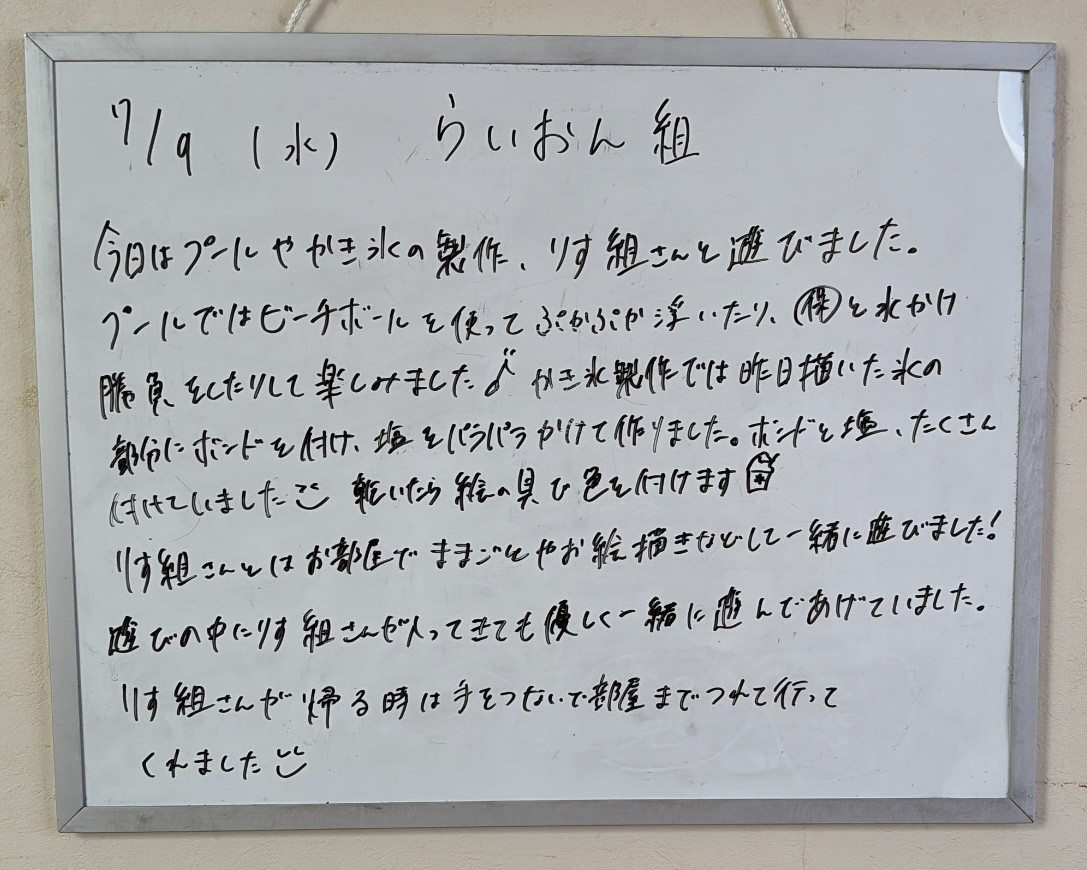 7/9 (水) らいおん組
今日はプールやかき氷の製作、りす組さんと遊びました。
プールではビーチボールを使ってぷかぷか浮いたり、㋭と水かけ
勝負をしたりして楽しみました♪ かき氷製作では昨日描いた氷の
部分にボンドを付け、塩をパラパラかけて作りました。ボンドと塩、たくさん
付けていました 乾いたら絵の具で色を付けます
りす組さんとはお部屋でままごとやお絵描きなどして一緒に遊びました!
遊びの中にりす組さんが入ってきても優しく一緒に遊んであげていました。
りす組さんが帰る時は手をつないで部屋までつれて行って
くれました